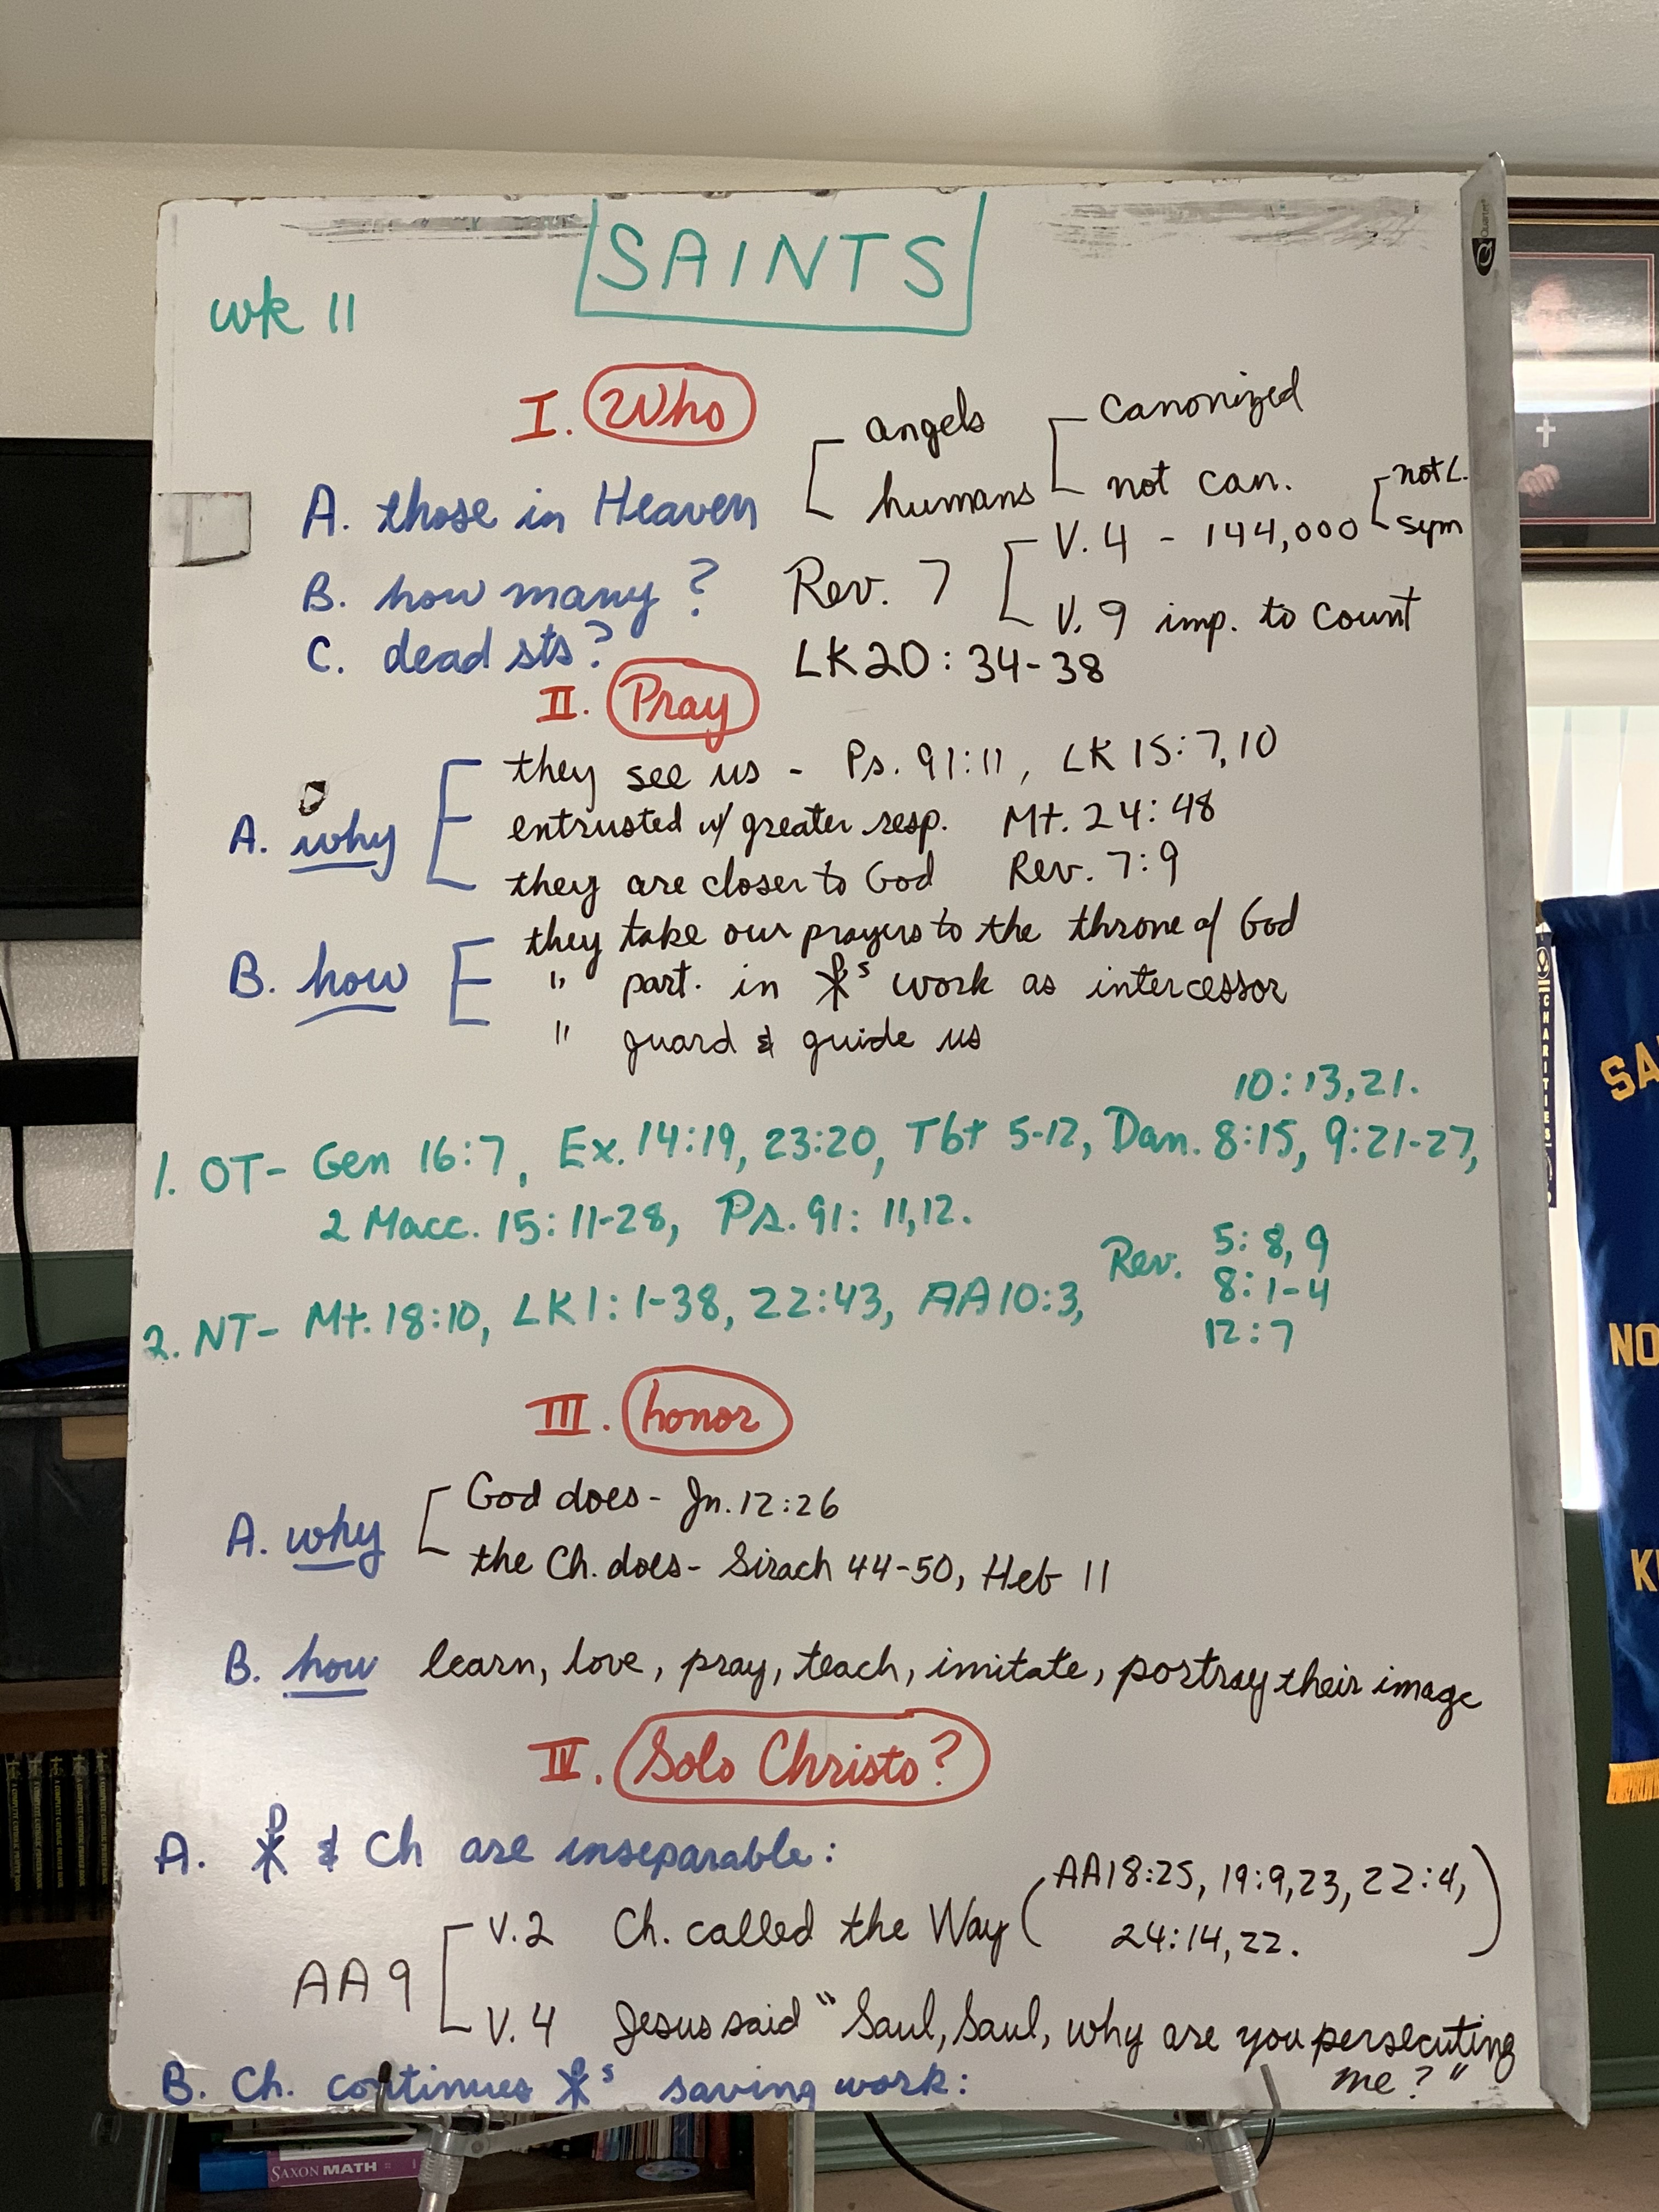 SAINTS
wk 11
I. Who
angels
canonized
A. those in Heaven
humans
not can.
not L.
B. how many? Rev. 7
V. 4 - 144,000
sym
V. 9 imp. to count
C. dead sts? LK 20: 34-38
II. Pray
A. why
they see us - Ps. 91:11, LK 15:7,10
entrusted w/ greater resp. Mt. 24:48
they are closer to God Rev. 7:9
B. how
they take our prayers to the throne of God
" part. in ☧s work as intercessor
" guard & guide us
10:13,21.
1. OT- Gen 16:7, Ex. 14:19, 23:20, Tbt 5-12, Dan. 8:15, 9:21-27,
2 Macc. 15:11-28, Ps. 91: 11,12.
2. NT- Mt. 18:10, LK 1: 1-38, 22:43, AA 10:3, Rev. 5:8,9
8:1-4
12:7
III. honor
A. why
God does- Jn. 12:26
the Ch. does- Sirach 44-50, Heb 11
B. how learn, love, pray, teach, imitate, portray their image
IV. Solo Christo?
A. ☧ & Ch are inseparable:
AA 9
V.2 Ch. called the Way (AA 18:25, 19:9,23, 22:4,
24:14,22.)
V.4 Jesus said "Saul, Saul, why are you persecuting
me?"
B. Ch. continues ☧s saving work:
Quartet
SA
NO
K
CHARITIES
SAXON MATH
A COMPLETE CATHOLIC PRAYER BOOK